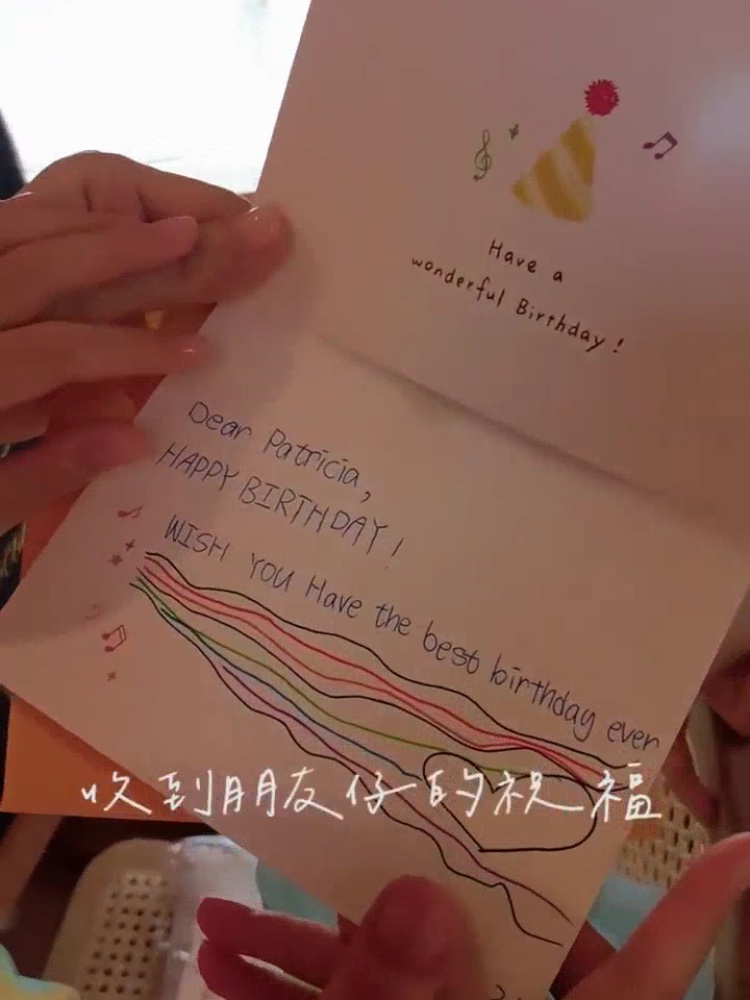 Have a
wonderful Birthday!
Dear Patricia,
HAPPY BIRTHDAY!
WISH YOU Have the best birthday ever
收到朋友仔的祝福